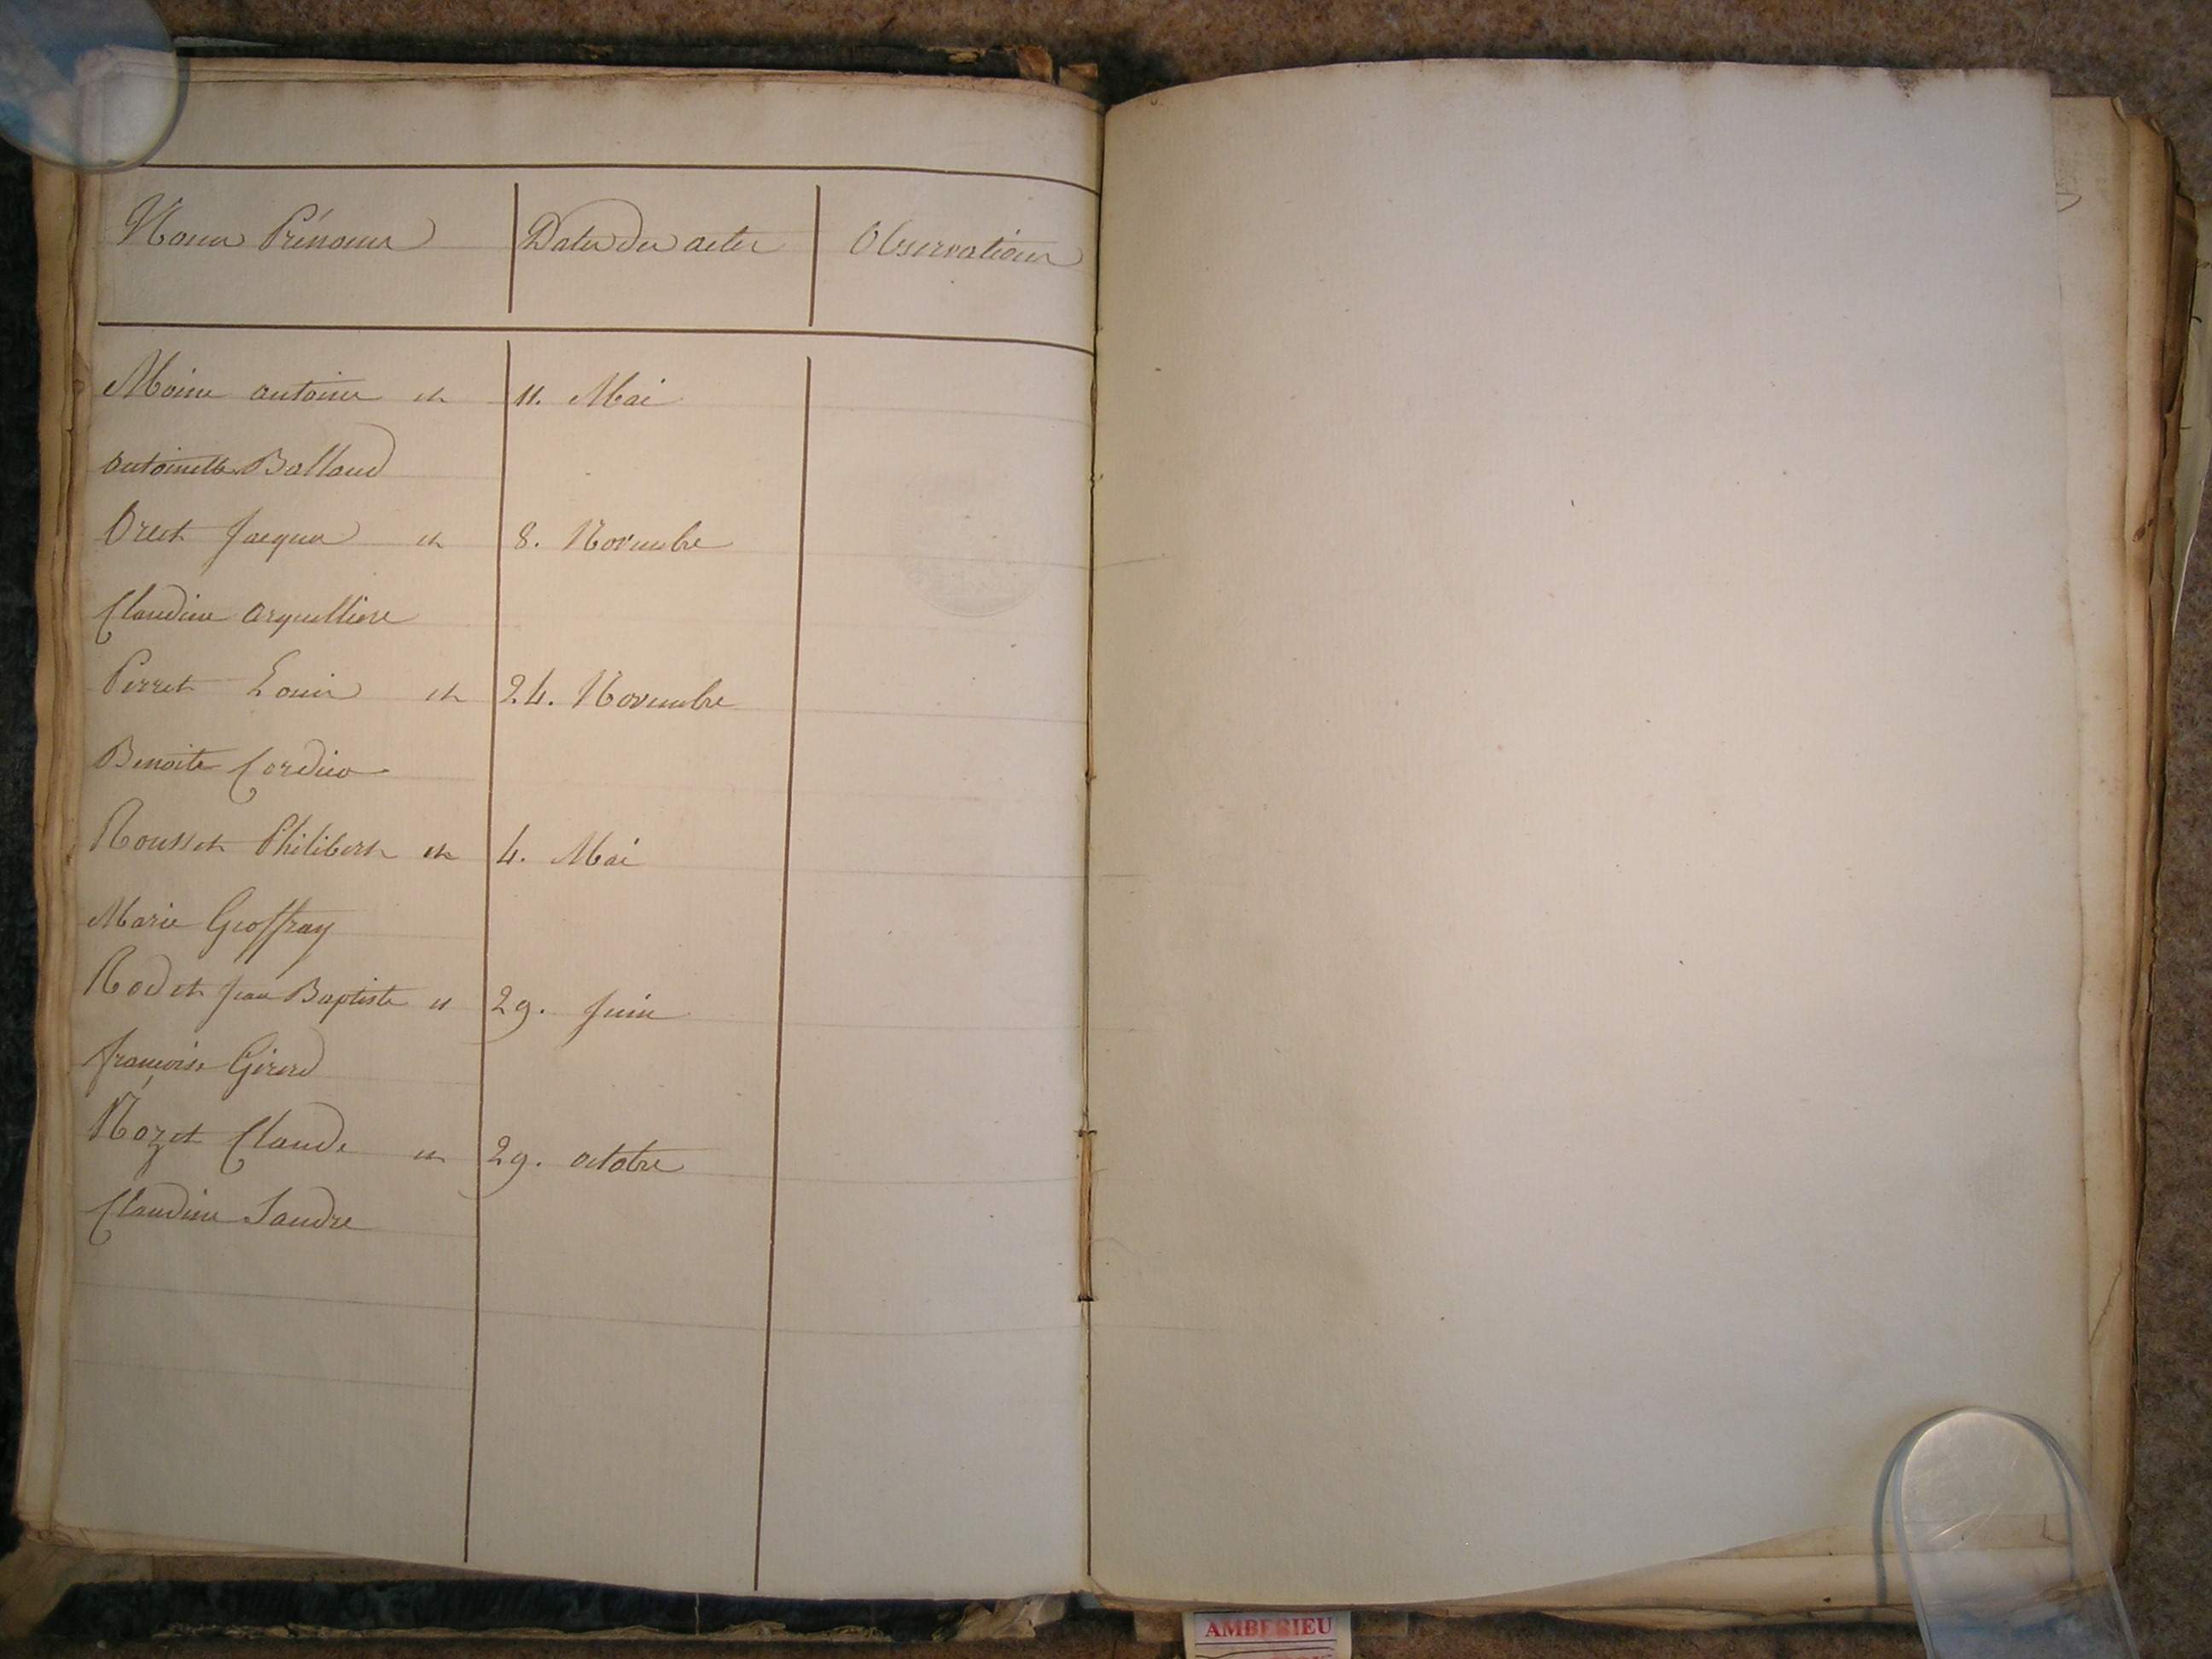 Noms Prénoms Dates des actes Observations
Moine antoine et 11. Mai
antoinette Balland
Orset Jacques et 8. Novembre
Claudine arquilliere
Perret Louis et 24. Novembre
Benoite Cordier
Rousset Philibert et 4. Mai
Marie Geoffray
Rodet Jean Baptiste et 29. Juin
françoise Girerd
Rozet Claude et 29. octobre
Claudine Sandre
AMBERIEU